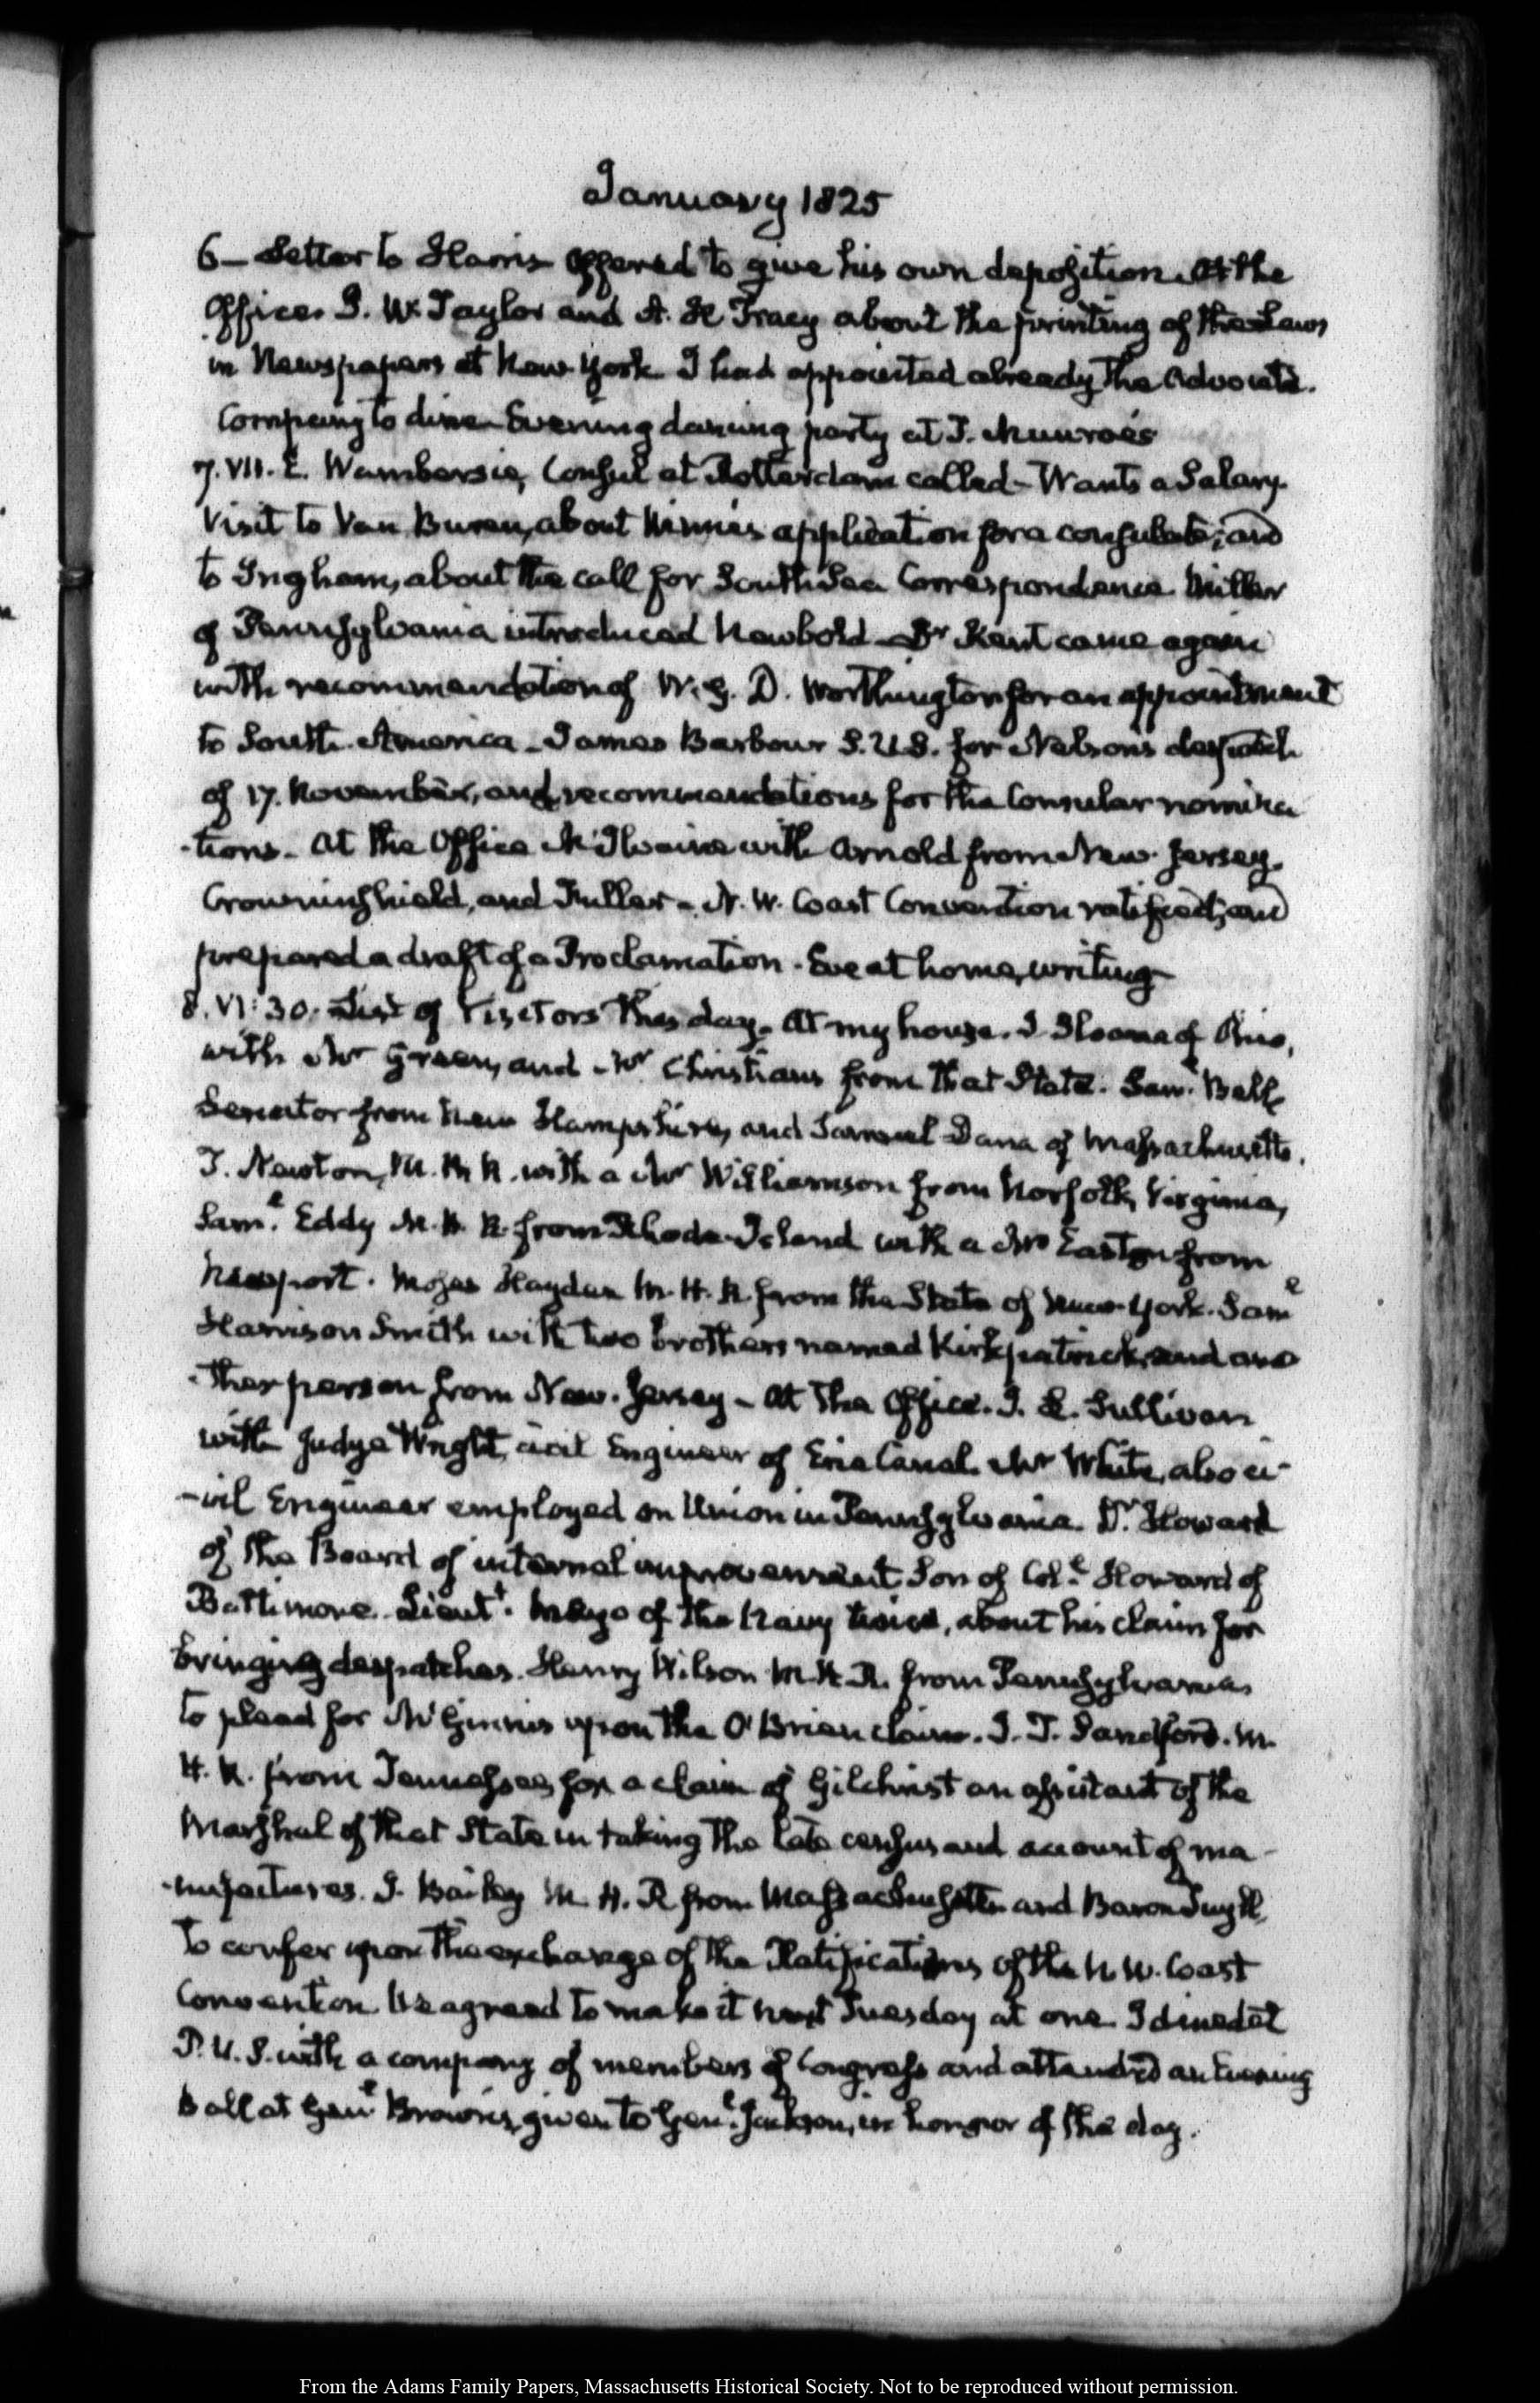 January 1825
6 — Letter to Harris offered to give his own deposition. At the
Office. J. W. Taylor and A. H. Tracy about the printing of the Laws
in Newspapers at New-York. I had appointed already the Advocate.
Company to dine — Evening dancing party at J. Munroe's
7. VII. E. Wambersie, Consul at Rotterdam called — Wants a Salary.
Visit to Van Buren, about application for a consulate; and
to Ingham, about the call for South Sea Correspondence. Miller
of Pennsylvania introduced Newbold — Dr. Kent came again
with recommendation of W. G. D. Worthington for an appointment
to South America — James Barbour S. U. S. for Nelson's despatch
of 17. November, and recommendations for the Consular nomina
-tions — At the Office McIlvaine with Arnold from New-Jersey.
Crowninshield, and Fuller — N. W. Coast Convention ratified; and
prepared a draft of a Proclamation. Eve at home, writing
8. VI: 30. List of Visitors this day. At my house. J Sloane of Ohio,
with Mr Green, and Mr Christians from that State. Saml. Bell
Senator from New Hampshire, and Samuel Dana of Massachusetts.
T. Newton, M. H. R. with a Mr Williamson from Norfolk, Virginia,
Saml. Eddy M. H. R. from Rhode-Island with a Mr Easton from
Newport. Moses Hayden M. H. R. from the State of New-York. Saml
Harrison Smith with two brothers named Kirkpatrick, and ano
-ther person from New-Jersey — At the Office. J. L. Sullivan
with Judge Wright, civil Engineer of Erie Canal. Mr White, also ci-
-vil Engineer employed on Union in Pennsylvania. Dr. Howard
of the Board of internal improvement Son of Coll. Howard of
Baltimore. Lieutt. Mayo of the Navy twice, about his claim for
bringing despatches. Henry Wilson M. H. R. from Pennsylvania
to plead for McGinnis upon the O'Brien claim. J. T. Sandford. M.
H. R. from Tennessee, for a claim of Gilchrist an assistant of the
Marshal of that State in taking the late census and account of ma-
-nufactures. J. Bailey M. H. R from Massachusetts and Baron Tuyll,
to confer upon the exchange of the Ratifications of the N. W. Coast
Convention. We agreed to make it next Tuesday at one. I dined at
P. U. S. with a company of members of Congress and attended an Evening
ball at Genl Brown's, given to Genl. Jackson, in honor of the day.
From the Adams Family Papers, Massachusetts Historical Society. Not to be reproduced without permission.